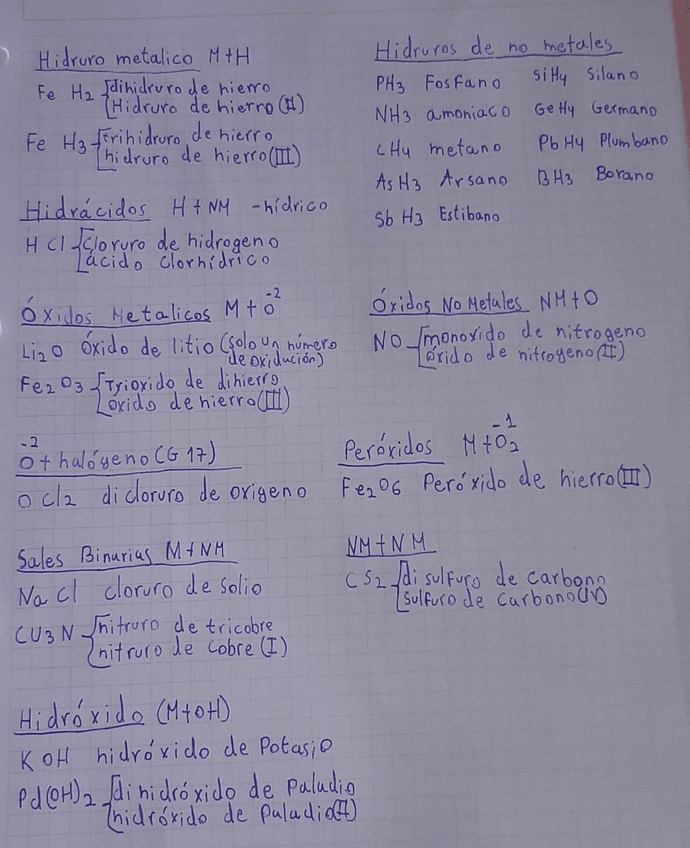 Hidruro metalico M+H
Fe H2 dihidruro de hierro
Hidruro de hierro (II)
Fe H3 trihidruro de hierro
hidruro de hierro (III)
Hidruros de no metales
PH3 Fosfano
SiH4 Silano
NH3 amoniaco
GeH4 Germano
CH4 metano
PbH4 Plumbano
AsH3 Arsano
BH3 Borano
SbH3 Estibano
Hidrácidos H+NM -hídrico
HCl cloruro de hidrogeno
ácido clorhídrico
Óxidos Metalicos M+O-2
Li2O óxido de litio (solo un número
de oxidución)
Fe2O3 Trioxido de dihierro
oxido de hierro (III)
Óxidos No Metules NM+O
NO monoxido de nitrogeno
óxido de nitrogeno (II)
O-2 + halógeno (G 17)
OCl2 dicloruro de origeno
Peróxidos M+O2-1
Fe2O6 Peróxido de hierro (III)
Sales Binurias M+NM
NaCl cloruro de solio
CU3N nitruro de tricobre
nitruro de cobre (I)
NM+NM
CS2 disulfuro de carbono
sulfuro de carbono (IV)
Hidróxido (M+OH)
KOH hidróxido de Potasio
Pd(OH)2 dihidróxido de Paludio
hidróxido de Paludio (II)